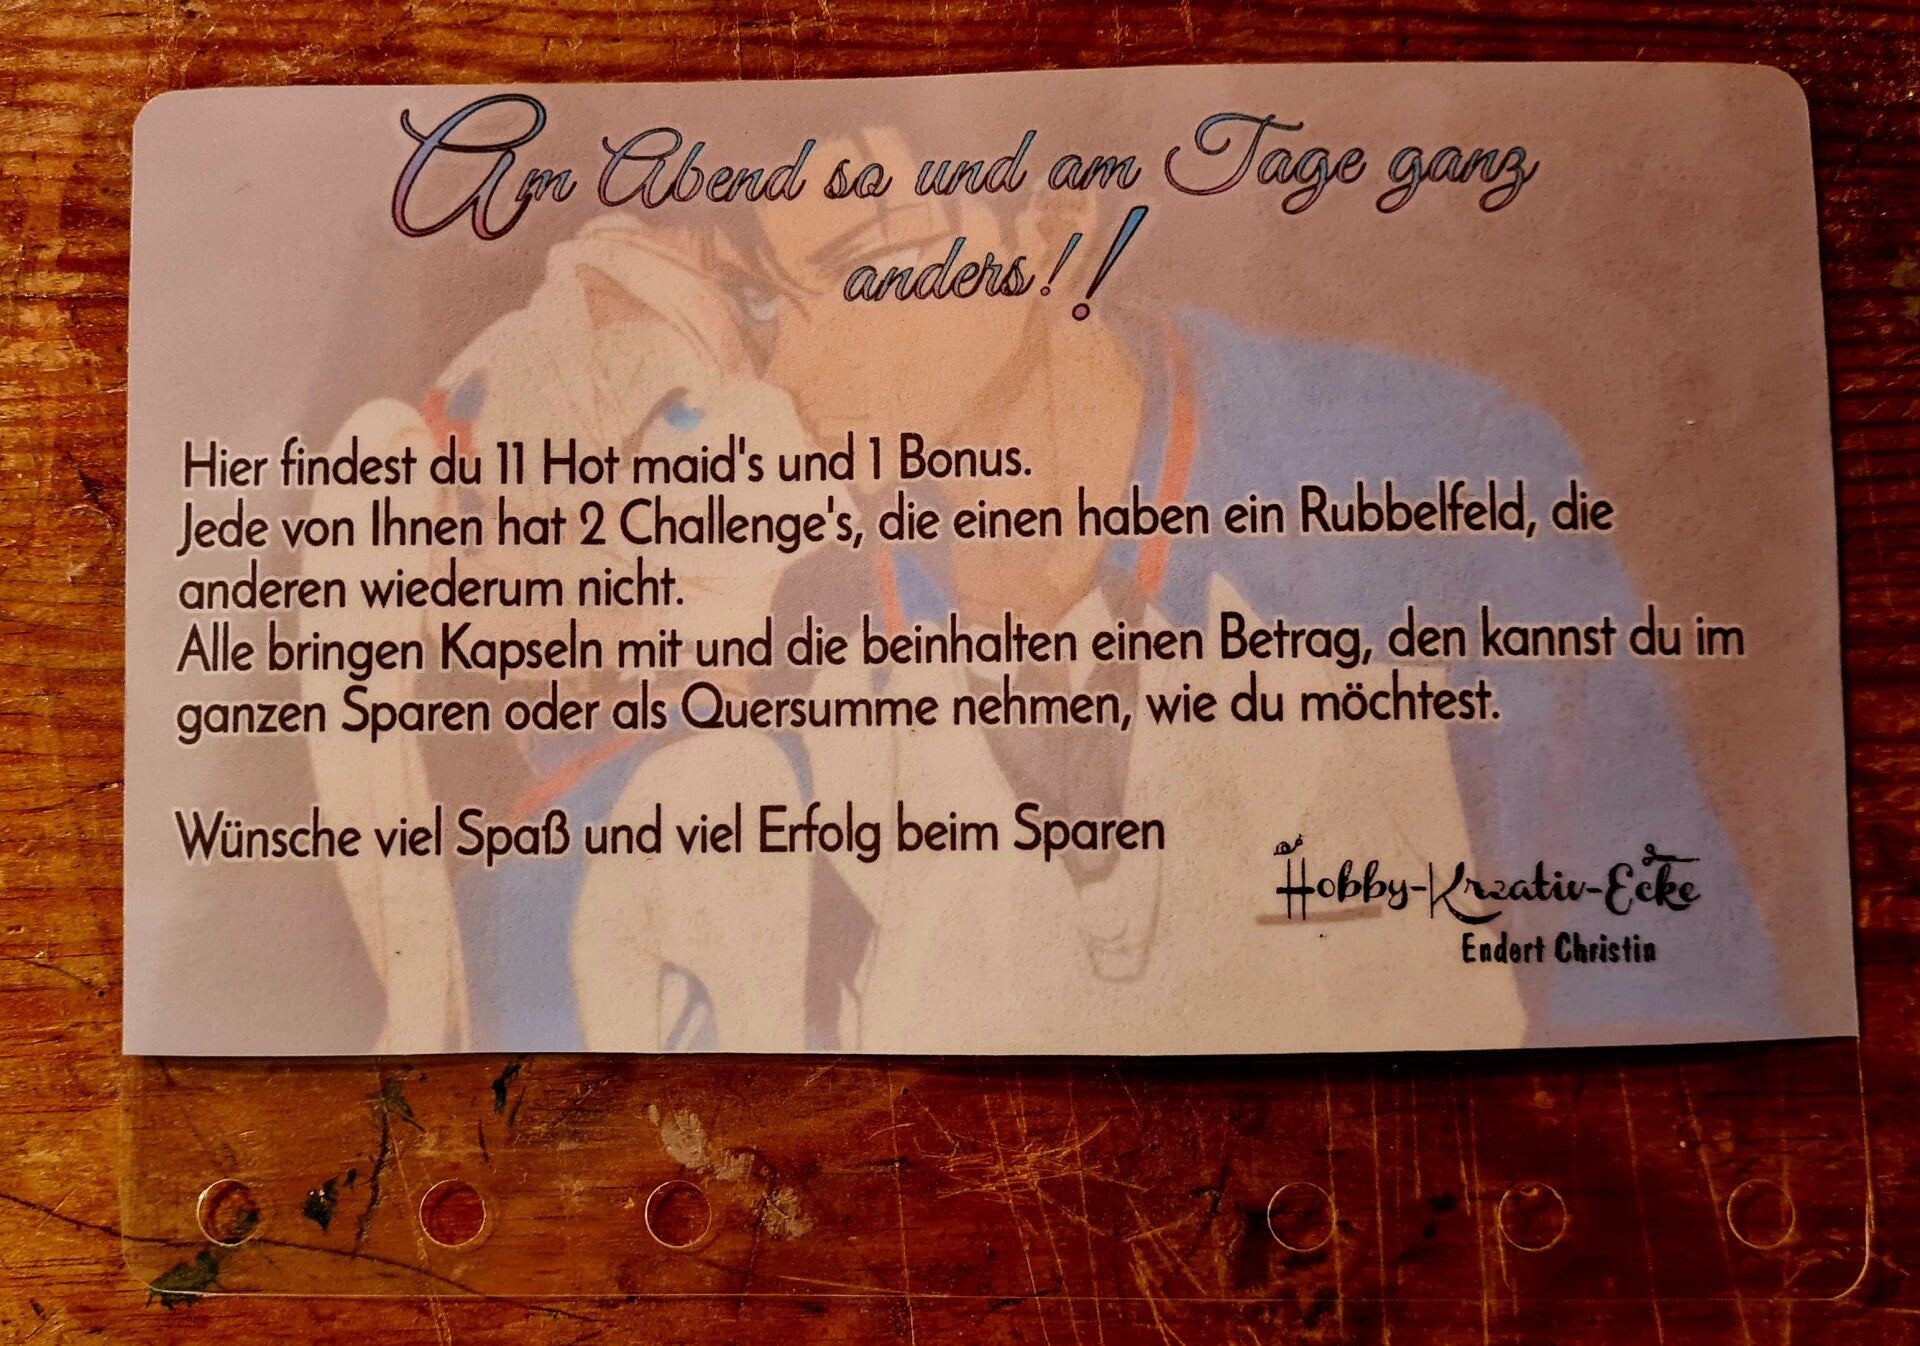 Am Abend so und am Tage ganz
anders!!
Hier findest du 11 Hot maid's und 1 Bonus.
Jede von Ihnen hat 2 Challenge's, die einen haben ein Rubbelfeld, die
anderen wiederum nicht.
Alle bringen Kapseln mit und die beinhalten einen Betrag, den kannst du im
ganzen Sparen oder als Quersumme nehmen, wie du möchtest.
Wünsche viel Spaß und viel Erfolg beim Sparen
Hobby-Kreativ-Ecke
Endert Christin